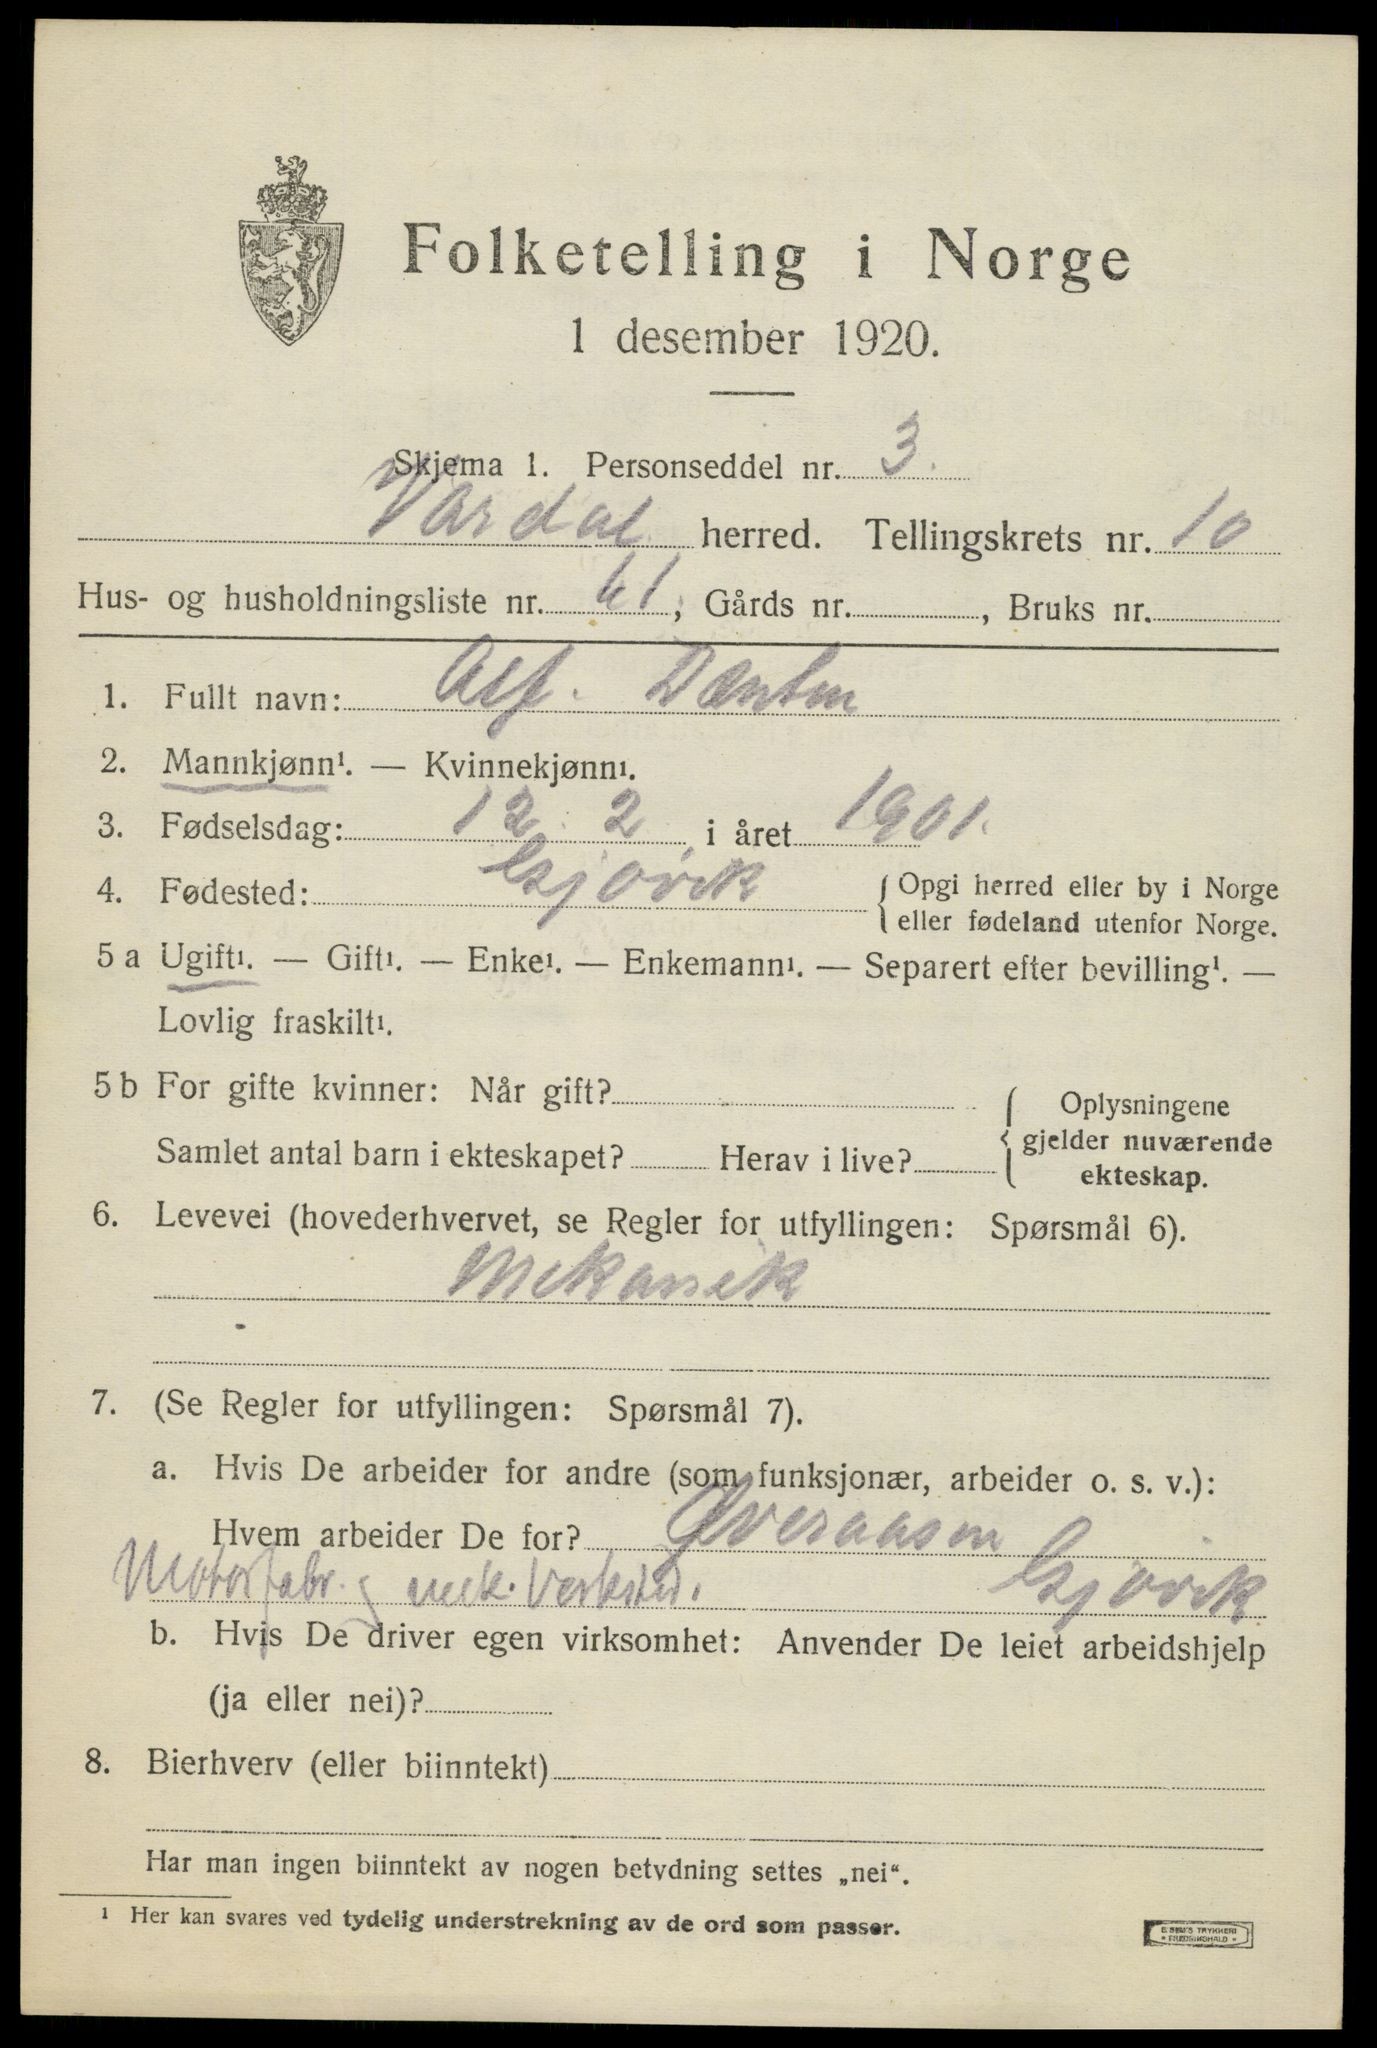 Folketelling i Norge
1 desember 1920.
Skjema 1. Personseddel nr. 3.
Vardal herred. Tellingskrets nr. 10
Hus- og husholdningsliste nr. 61, Gårds nr. , Bruks nr.
1. Fullt navn: Alf.
2. Mannkjønn¹. — Kvinnekjønn¹.
3. Fødselsdag: 12 2, i året 1901.
4. Fødested: Gjøvik {Opgi herred eller by i Norge
eller fødeland utenfor Norge.
5 a Ugift¹. — Gift¹. — Enke¹. — Enkemann¹. — Separert efter bevilling¹. —
Lovlig fraskilt¹.
5 b For gifte kvinner: Når gift? { Oplysningene
Samlet antal barn i ekteskapet? Herav i live? gjelder nuværende
ekteskap.
6. Levevei (hovederhvervet, se Regler for utfyllingen: Spørsmål 6).
Mekanik
7. (Se Regler for utfyllingen: Spørsmål 7).
a. Hvis De arbeider for andre (som funksjonær, arbeider o. s. v.):
Hvem arbeider De for? Øveraasen
Motorfabr. og mek. Verksted. Gjøvik
b. Hvis De driver egen virksomhet: Anvender De leiet arbeidshjelp
(ja eller nei)?
8. Bierhverv (eller biinntekt)
Har man ingen biinntekt av nogen betydning settes „nei“.
¹ Her kan svares ved tydelig understrekning av de ord som passer.
E. SEM'S TRYKKERI
* FREDRIKSHALD *